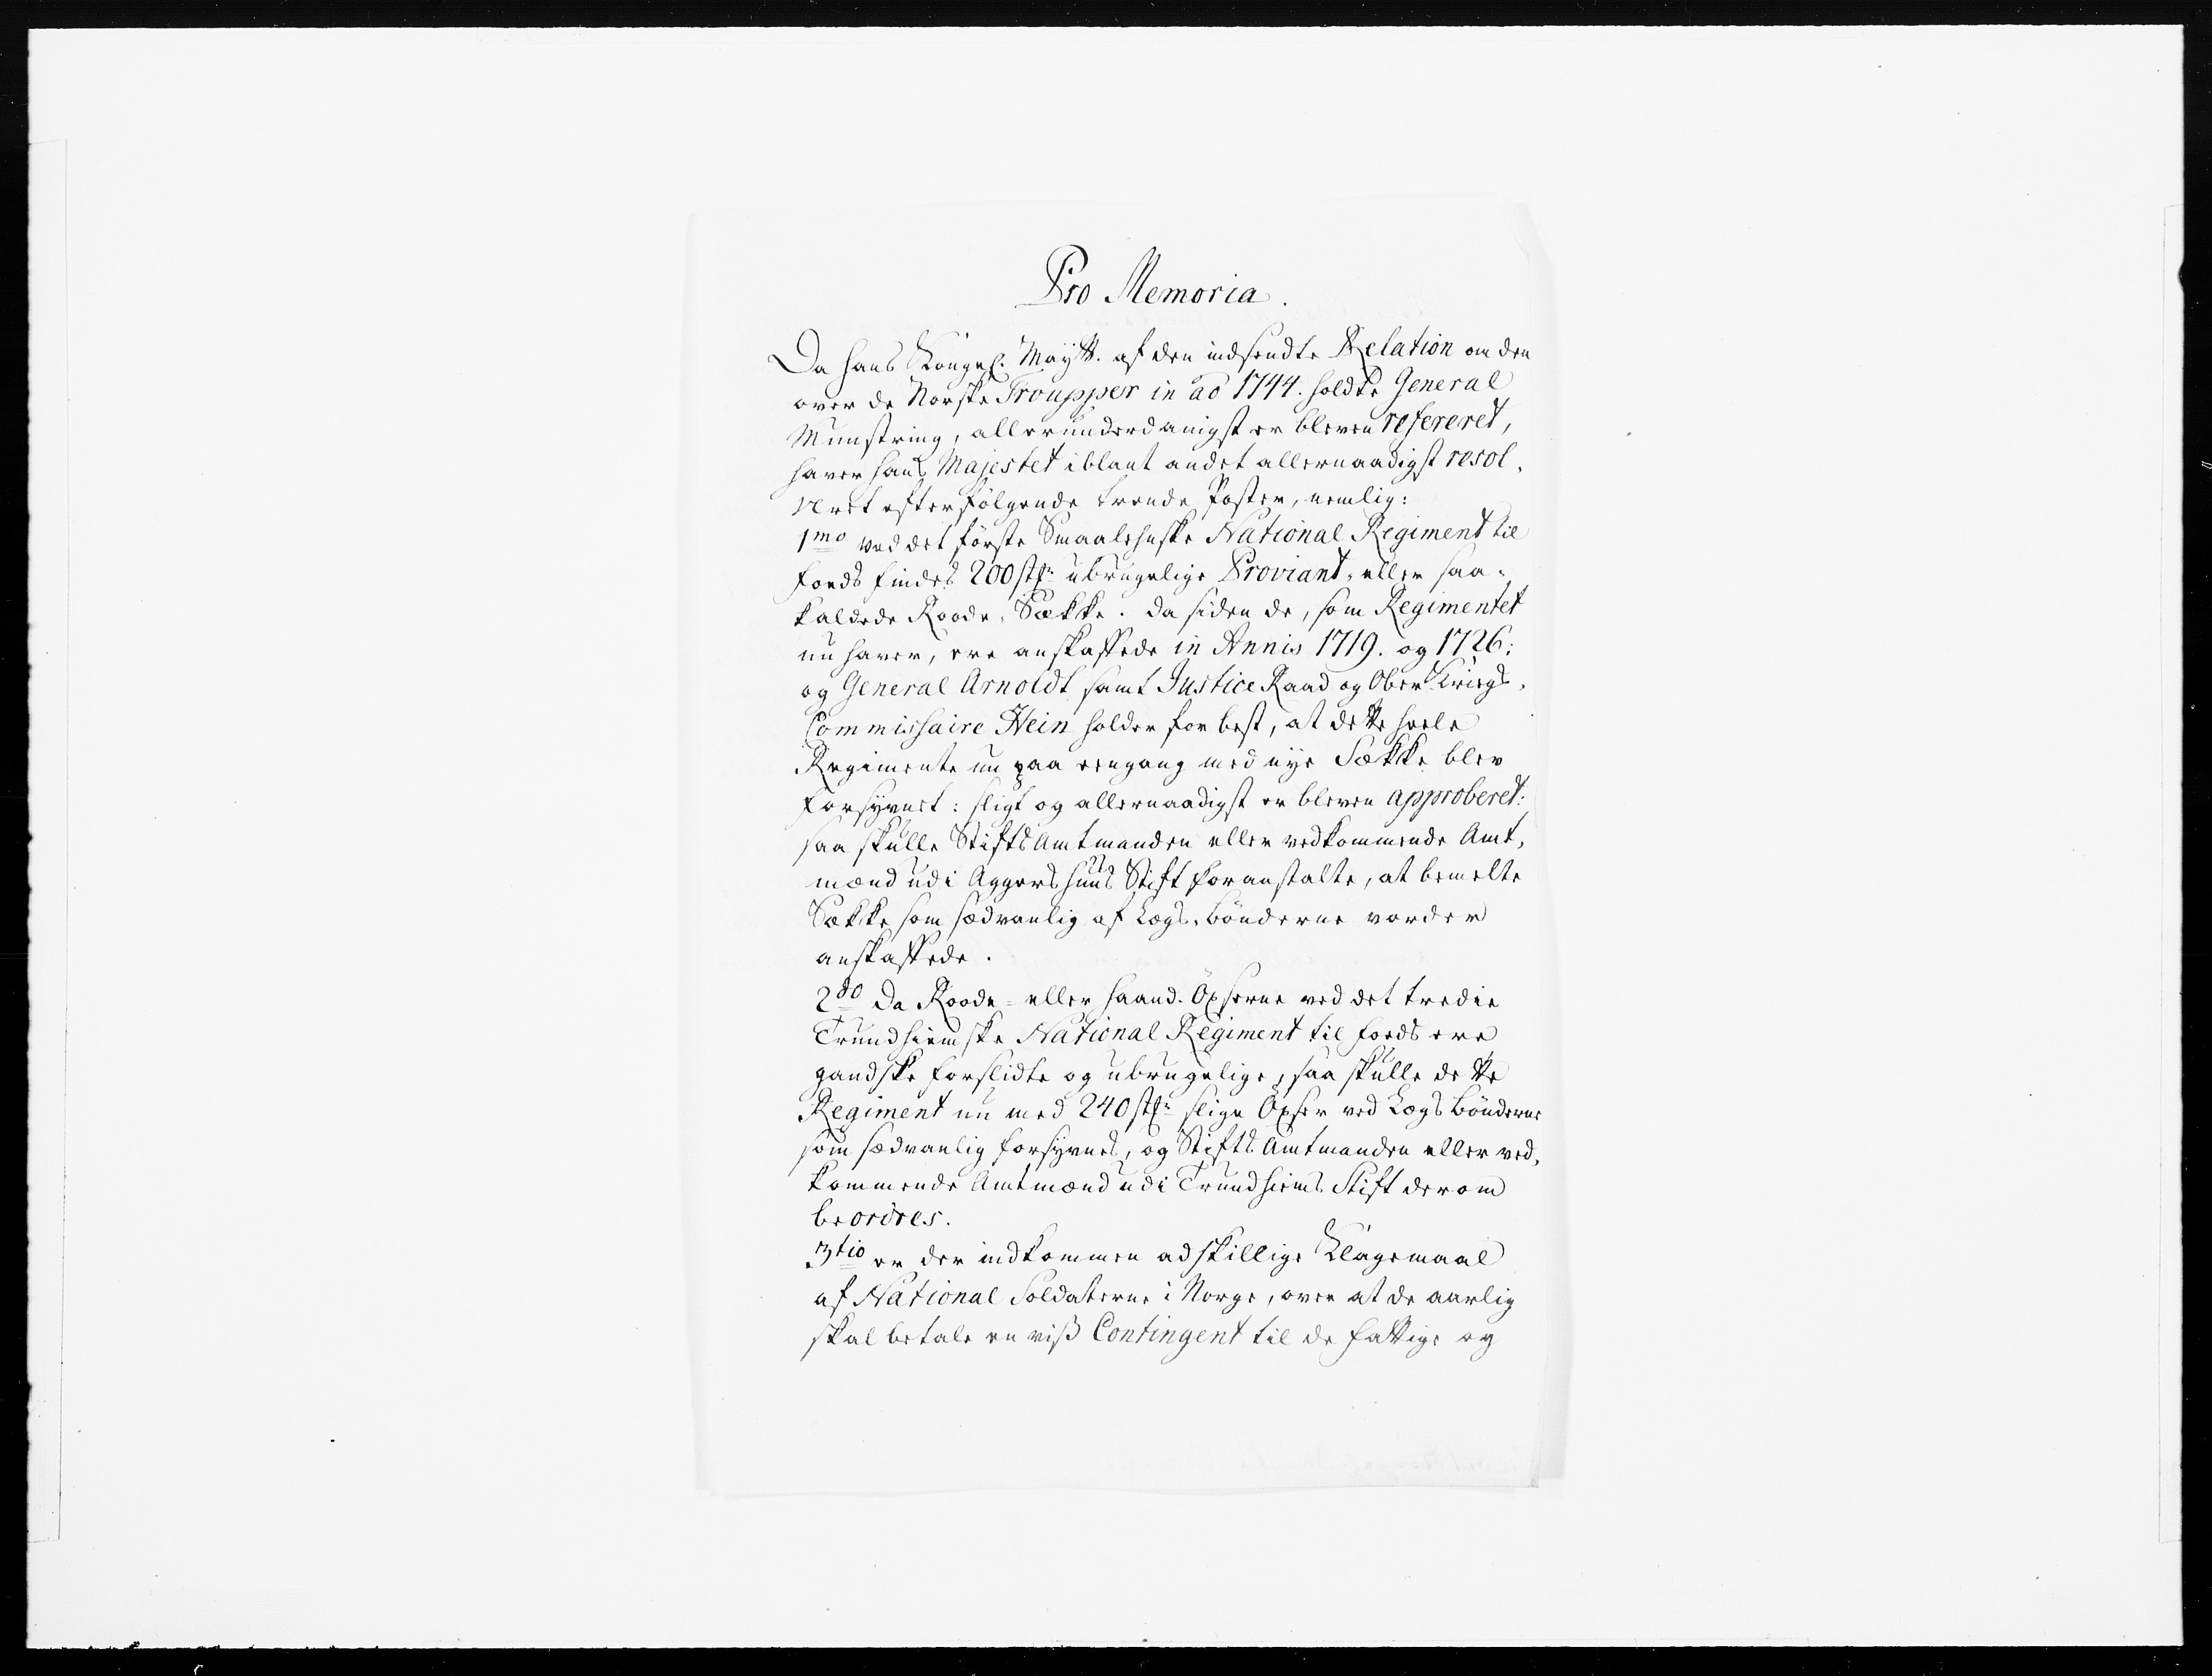 Pro Memoria.
Da Hans Kongel. Maytt. af den indsendte Relation om den
over de Norske Troupper in ao 1744. holdte General
Munstring, allerunderdanigst er bleven refereret,
haver Hans Majestet iblant andet allernaadigst resol-
veret efterfølgende trende Poster, nemlig:
1mo ved det første Smaalehnske National Regiment til
Foeds findes 200 stkr ubrugelige Proviant- eller saa-
kaldede Roode-Sække. Da siden de, som Regimentet
nu haver, ere anskaffede in Annis 1719. og 1726;
og General Arnoldt samt Justice Raad og Ober Kriegs-
Commissaire Hein holder for best, at dette heele
Regimente nu paa eengang med nye Sække blev
forsynet: sligt og allernaadigst er bleven approberet:
saa skulle StiftsAmtmanden eller vedkommende Amt-
mænd udi Aggershuus Stift foranstalte, at bemelte
Sække som sædvanlig af Legs-Bønderne vorder
anskaffede.
2do Da Roode- eller Haand-Öxerne ved det tredie
Trundhiemske National Regiment til Foeds ere
gandske forslidte og ubrugelige, saa skulle dette
Regiment nu med 240 stkr slige Öxer ved Legs Bönderne
som sædvanlig forsynes, og Stifts Amtmanden eller ved-
kommende Amtmænd udi Trundhiems Stift derom
beordres.
3tio er der indkommen adskillige Klagemaal
af National Soldaterne i Norge, over at de aarlig
skal betale en viß Contingent til de fattige og